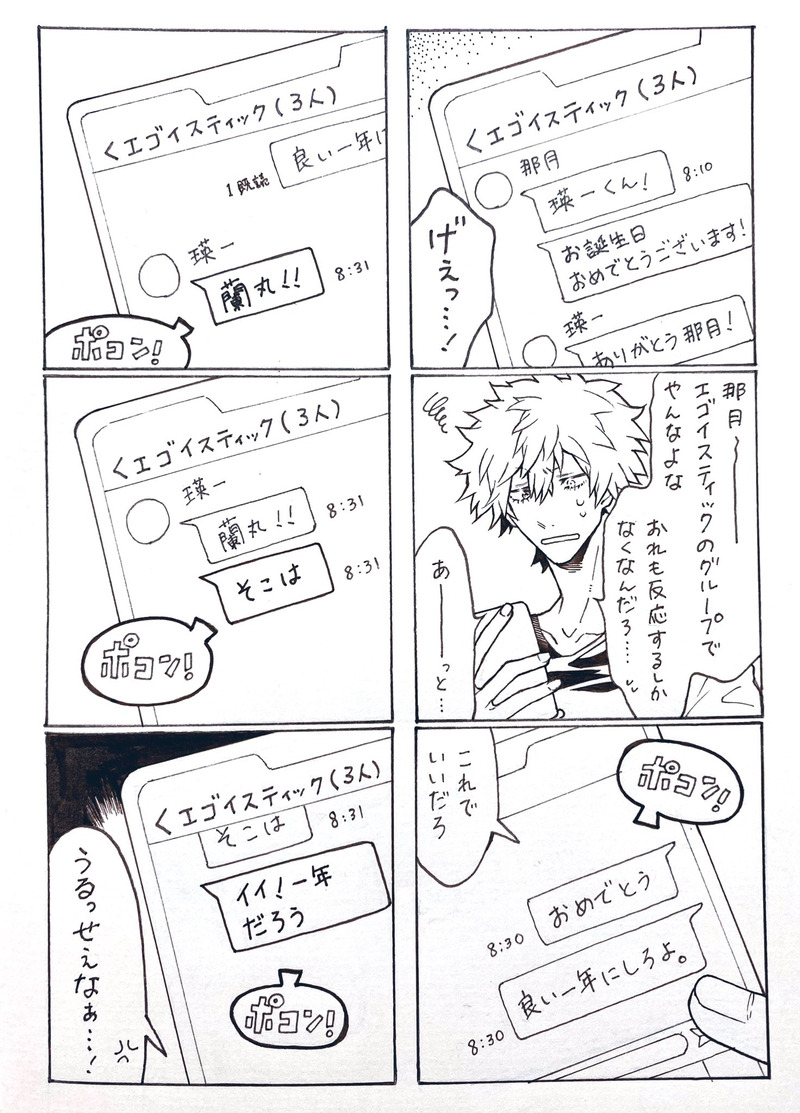 くエゴイスティック(3人)
那月
瑛一くん!
8:10
お誕生日
おめでとうございます!
瑛一
ありがとう那月!
げえっ…!
那月〜
エゴイスティックのグループで
やんなよな
おれも反応するしか
なくなんだろ……
あ――っと…
ポコン!
これで
いいだろ
おめでとう
8:30
良い一年にしろよ。
8:30
くエゴイスティック(3人)
良い一年に
1既読
瑛一
蘭丸!!
8:31
ポコン!
くエゴイスティック(3人)
瑛一
蘭丸!!
8:31
そこは
8:31
ポコン!
くエゴイスティック(3人)
そこは
8:31
イイ!一年
だろう
ポコン!
うるっせぇなぁ…!